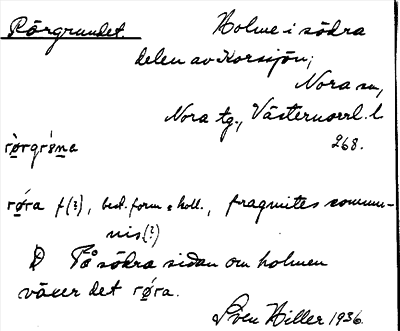 Rörgrundet.
Holme i södra
delen av Korssjön,
Nora sn,
Nora tg., Västernorrl. l
268.
røra f(?), best. form o koll., fragmites commu-
nis(?)
På södra sidan om holmen
växer det røra.
Sven Hiller 1936.